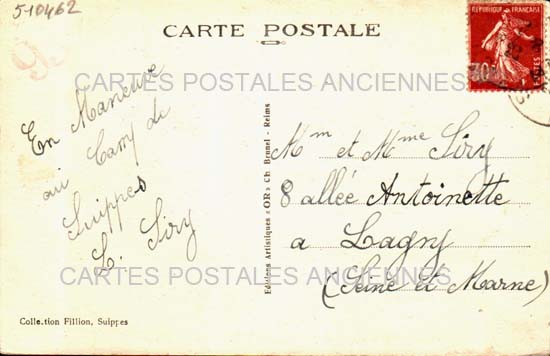 510462
CARTE POSTALE
RÉPUBLIQUE FRANÇAISE
CARTES POSTALES ANCIENNES
En Maneuvre
au Camp de
Suippes
L. Siry
Editions Artistiques "OR" Ch. Brunel - Reims
Mm et Mme Siry
8 allée Antoinette
a Lagny
(Seine et Marne)
CARTES POSTALES ANCIENNES
Collection Fillion, Suippes